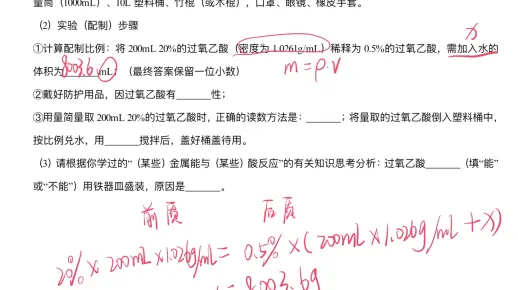 量筒（1000mL）、10L 塑料桶、竹棍（或木棍），口罩、眼镜、橡皮手套。
（2）实验（配制）步骤
x
①计算配制比例：将 200mL 20%的过氧乙酸（密度为 1.0261g/mL）稀释为 0.5%的过氧乙酸，需加入水的
体积为8003.6mL；（最终答案保留一位小数）
m=ρ.V
②戴好防护用品，因过氧乙酸有______性；
③用量筒量取 200mL 20%的过氧乙酸时，正确的读数方法是：______；将量取的过氧乙酸倒入塑料桶中，
按比例兑水，用______搅拌后，盖好桶盖待用。
（3）请根据你学过的“（某些）金属能与（某些）酸反应”的有关知识思考分析：过氧乙酸______（填“能”
或“不能”）用铁器皿盛装，原因是______。
前质 后质
20%×200mL×1.026g/mL=0.5%×(200mL×1.026g/mL+x)
8003.6g